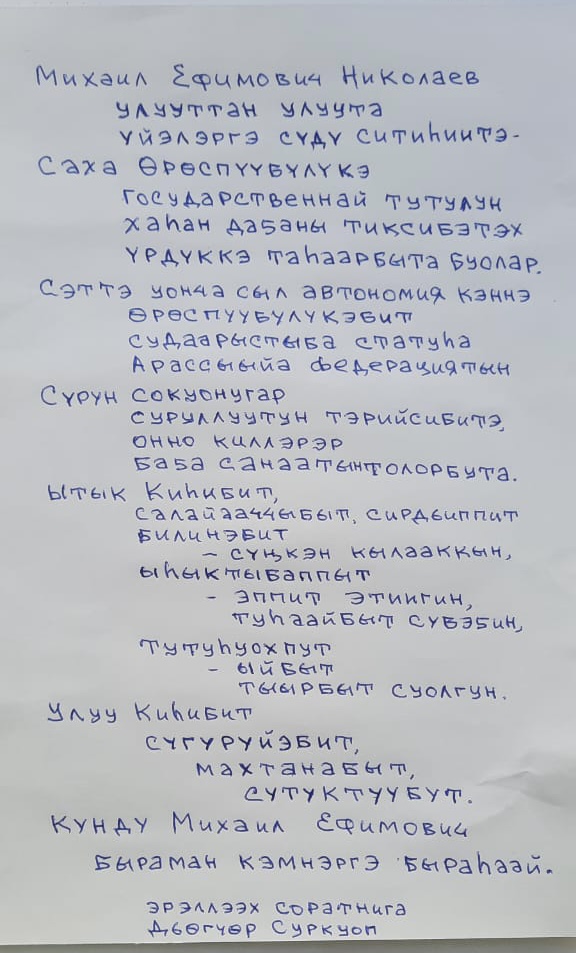 Михаил Ефимович Николаев
улууттан улуута
үйэлэргэ сүдү ситиһиитэ-
Саха Өрөспүүбүлүкэ
государственнай тутулун
хаһан даҕаны тиксибэтэх
үрдүккэ таһаарбыта буолар.
Сэттэ уонча сыл автономия кэннэ
өрөспүүбүлүкэбит
судаарыстыба статуһа
Арассыыйа федерациятын
Сүрүн сокуонугар
суруллуутун тэрийсибитэ,
онно киллэрэр
баҕа санаатын толорбута.
Ытык Киһибит,
салайааччыбыт, сирдьиппит
билиҥҥэбит
– сүҥкэн кылааккын,
ыһыктыбаппыт
– эппит этиигин,
туһаайбыт сүбэҕин,
тутуһуохпут
– ыйбыт
тыырбыт суолгун.
Улуу Киһибит
сүгүрүйэбит,
махтанабыт,
сүтүктүүбүт.
Күндү Михаил Ефимович
быраман кэмнэргэ быраһаай.
эрэллээх соратнига
Дьөгүөр Суркуоп